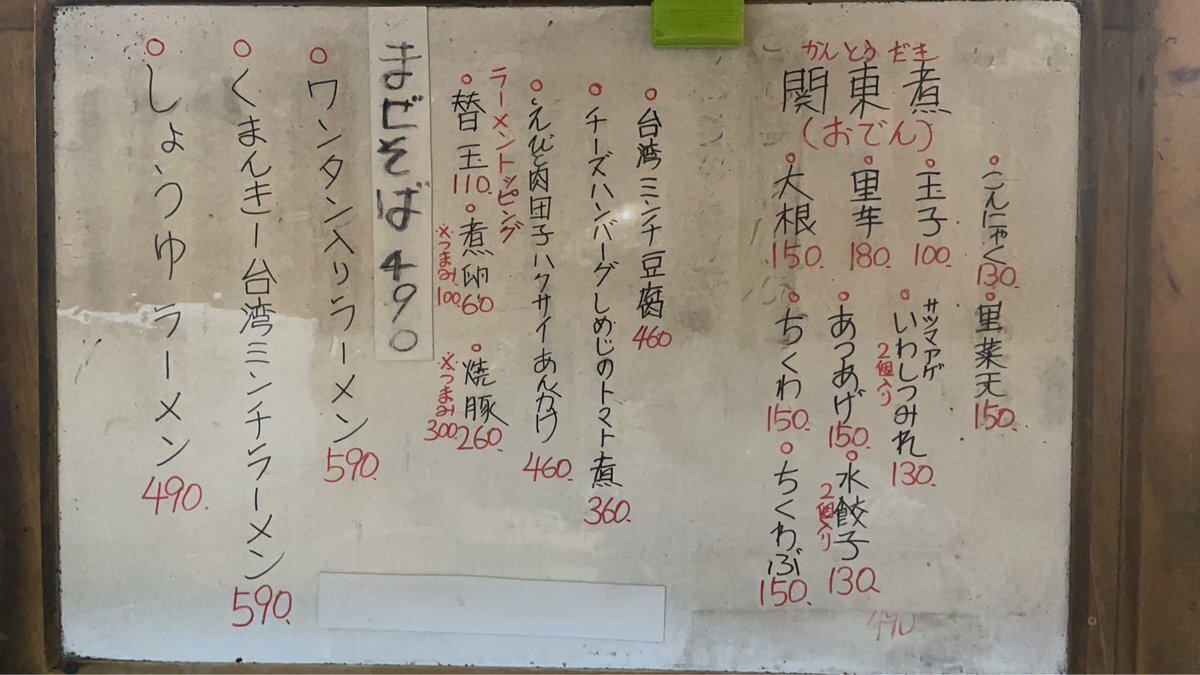 かんとうだき
関東煮
(おでん)
○こんにゃく 130.
○黒菜天 150.
○玉子 100.
サツマアゲ
○いわしつみれ 130.
2個入り
○里芋 180.
○あつあげ 150.
○水餃子 130
2個入り
○大根 150.
○ちくわ 150.
○ちくわぶ 150.
490
○台湾ミンチ豆腐 460
○チーズハンバーグしめじのトマト煮 360.
○えびと肉団子ハクサイあんかけ 460.
ラーメントッピング
○替玉 110.
○煮卵 60.
※つまみ 100
○焼豚 260.
※つまみ 300
まぜそば 490
○ワンタン入りラーメン 590.
○くまんきー台湾ミンチラーメン 590.
○しょうゆラーメン 490.